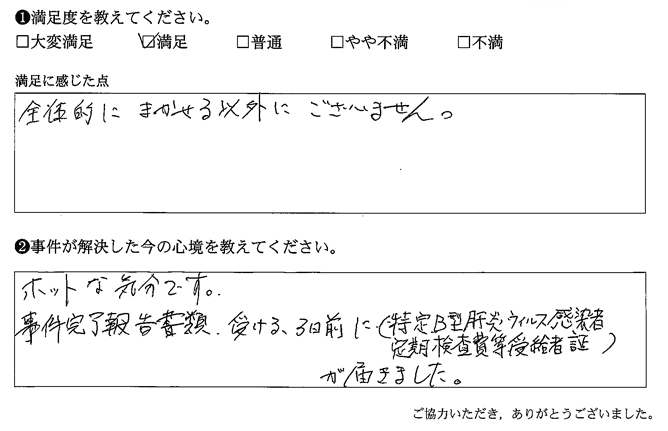 ❶満足度を教えてください。
□大変満足 ☑満足 □普通 □やや不満 □不満
満足に感じた点
全体的に まかせる以外に ございません。
❷事件が解決した今の心境を教えてください。
ホットな気分です。
事件完了報告書類.受ける、3日前に(特定B型肝炎ウィルス感染者
定期検査費等受給者証)
が届きました。
ご協力いただき，ありがとうございました。